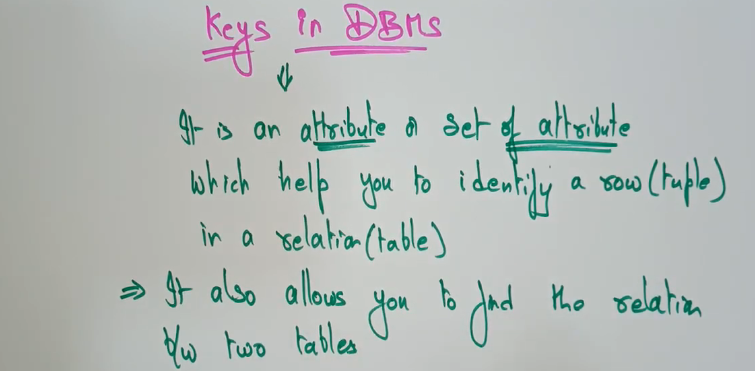 Keys in DBMS
It is an attribute or set of attribute
which help you to identify a row (tuple)
in a relation (table)
⇒ It also allows you to find the relation
b/w two tables